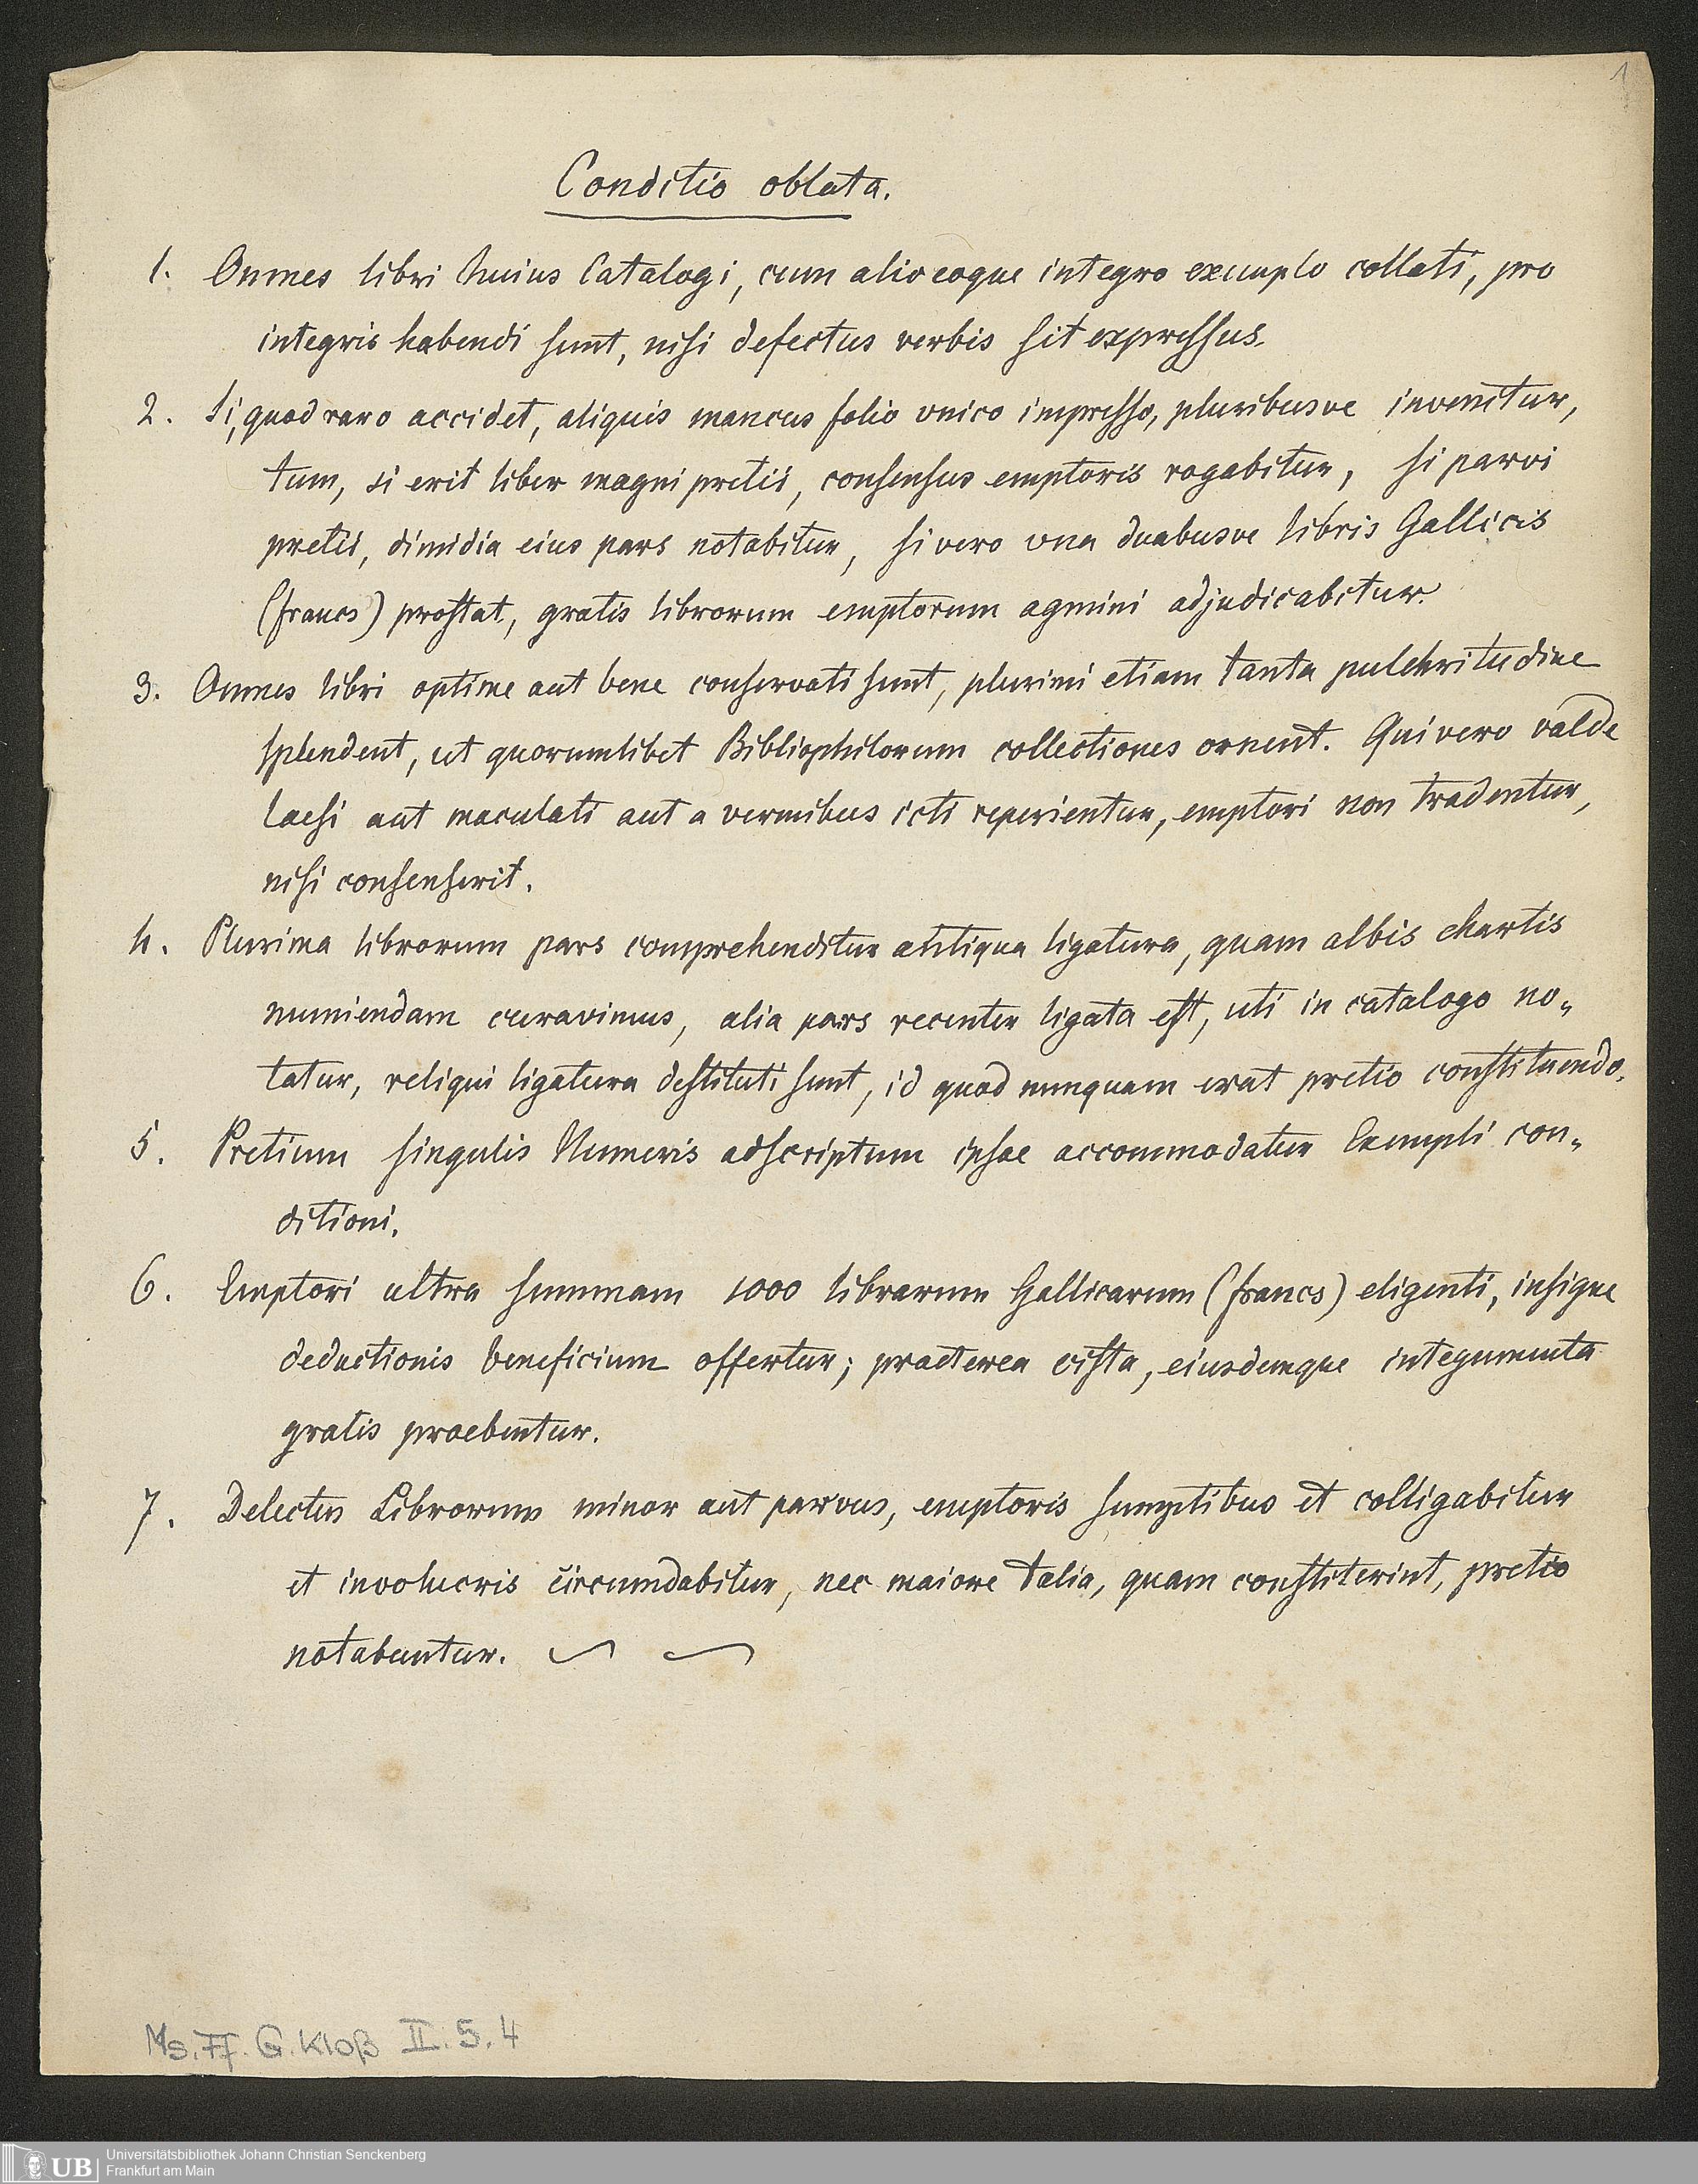 1
Conditio oblata.
1. Omnes libri huius Catalogi, cum alio eoque integro exemplo collati, pro
integris habendi sunt, nisi defectus verbis sit expressus.
2. Si, quod raro accidet, aliquis mancus folio vnico impresso, pluribusve invenitur,
tum, si erit liber magni pretii, consensus emptoris rogabitur, si parvi
pretii, dimidia eius pars notabitur, si vero vna duabusve libris Gallicis
(francs) prostat, gratis librorum emptorum agmini adjudicabitur.
3. Omnes libri optime aut bene conservati sunt, plurimi etiam tanta pulchritudine
splendent, ut quorumlibet Bibliophilorum collectiones ornent. Qui vero valde
laesi aut maculati aut a vermibus icti reperientur, emptori non tradentur,
nisi consenserit.
4. Plurima librorum pars comprehenditur antiqua ligatura, quam albis chartis
muniendam curavimus, alia pars recenter ligata est, uti in catalogo no„
tatur, reliqui ligatura destituti sunt, id quod nunquam erat pretio constituendo.
5. Pretium singulis Numeris adscriptum ipsae accommodatur Exempli con„
ditioni.
6. Emptori ultra summam 1000 librarum Gallicarum (francs) eligenti, insigne
deductionis beneficium offertur; praeterea cista, eiusdemque integumenta
gratis praebentur.
7. Delectus Librorum minor aut parvus, emptoris sumptibus et colligabitur
et involucris circumdabitur, nec maiore talia, quam constiterint, pretio
notabuntur.
Ms. Ff. G. Kloß II. 5. 4
UB
Universitätsbibliothek Johann Christian Senckenberg
Frankfurt am Main